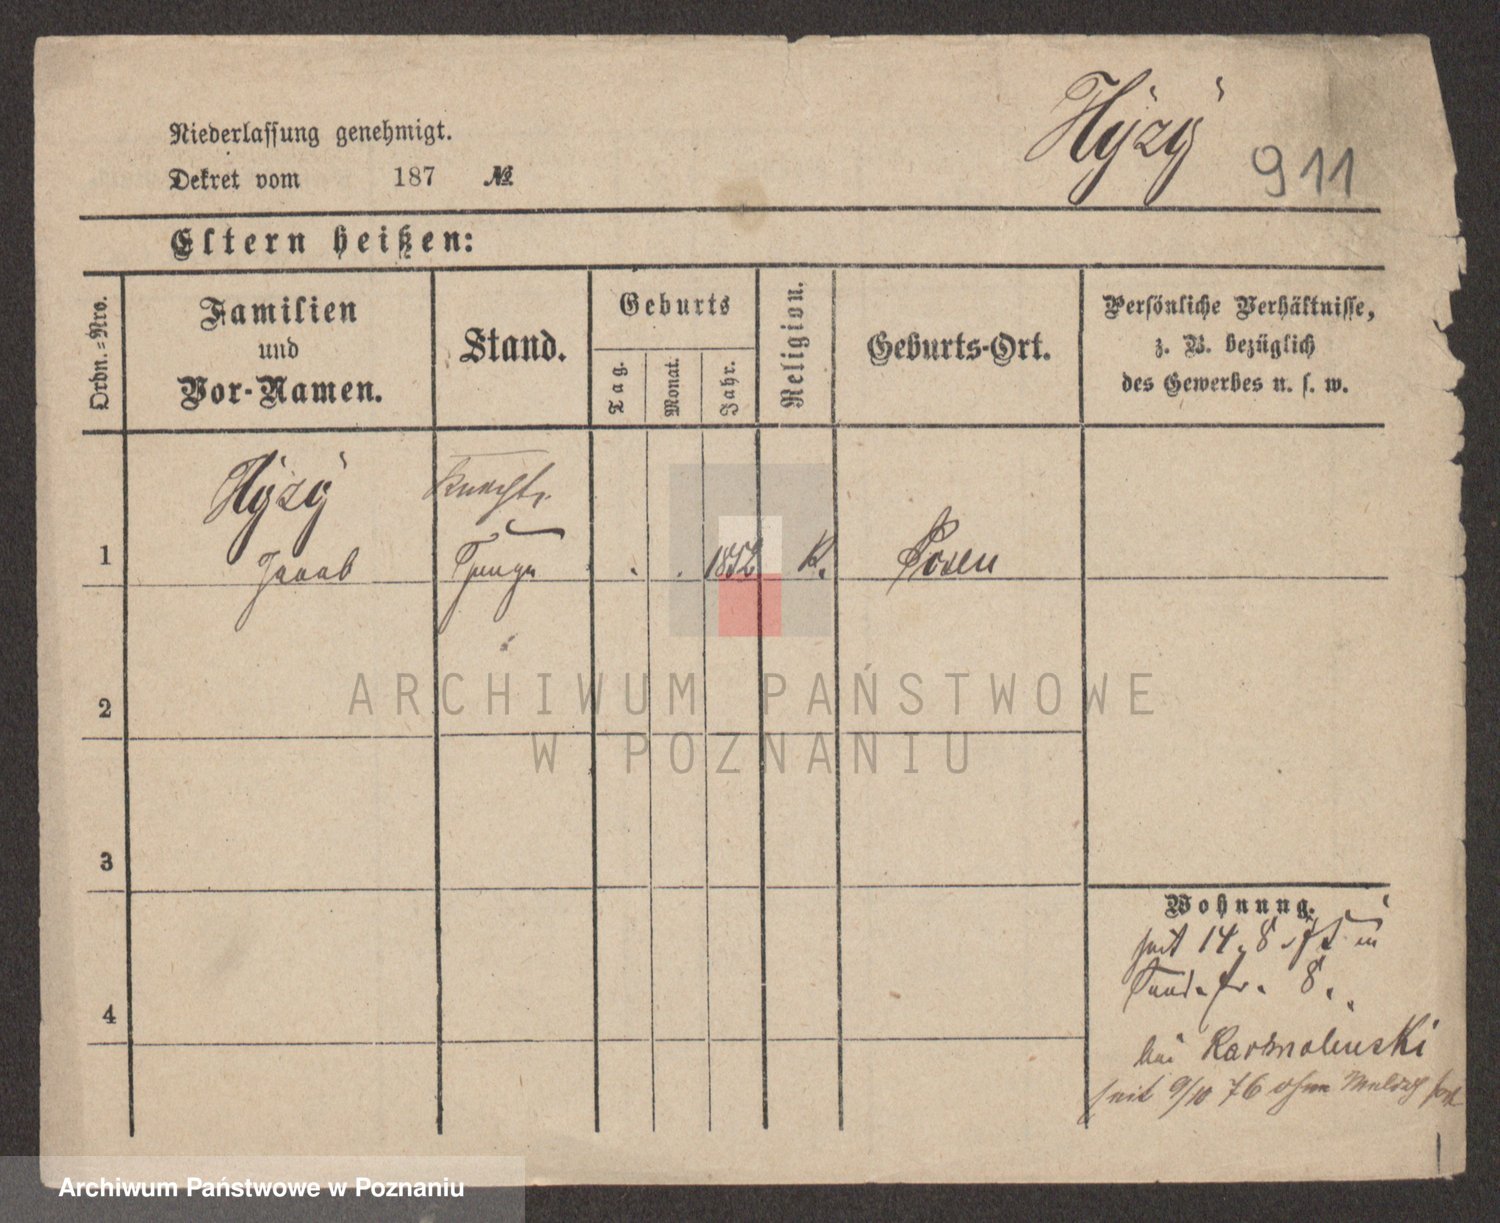 Hyzy 911
Niederlassung genehmigt.
Dekret vom 187 №
Eltern heißen:
Ordn.=Nro.
Familien
und
Vor-Namen.
Stand.
Geburts
Tag.
Monat.
Jahr.
Religion.
Geburts-Ort.
Persönliche Verhältnisse,
z. B. bezüglich
des Gewerbes u. s. w.
Hyzy Knecht
1 Jacob . . 1852 K. Posen
2
3
4
Wohnung.
seit 14. 8. 75 in
8.
bei Karmolinski
seit 9/10 76 ohne
ARCHIWUM PAŃSTWOWE
W POZNANIU
Archiwum Państwowe w Poznaniu